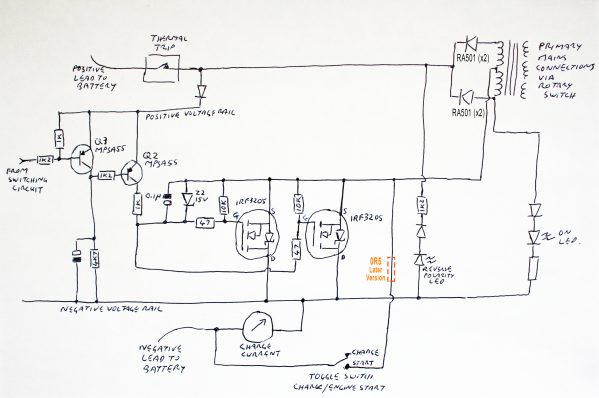 THERMAL
TRIP
POSITIVE
LEAD TO
BATTERY
RA501 (x2)
RA501 (x2)
PRIMARY
MAINS
CONNECTIONS
VIA
ROTARY
SWITCH
POSITIVE VOLTAGE RAIL
1K
Q3
MPSA55
1K2
FROM
SWITCHING
CIRCUIT
1K2
Q2
MPSA55
1K
0.1µ
Z2
15V
10K
47
IRF3205
G
S
D
10K
47
G
IRF3205
S
D
4K7
0R5
Later
Version
1K2
REVERSE
POLARITY
LED
ON
LED.
NEGATIVE VOLTAGE RAIL
NEGATIVE
LEAD TO
BATTERY
CHARGE
CURRENT
CHARGE
START
TOGGLE SWITCH
CHARGE/ENGINE START